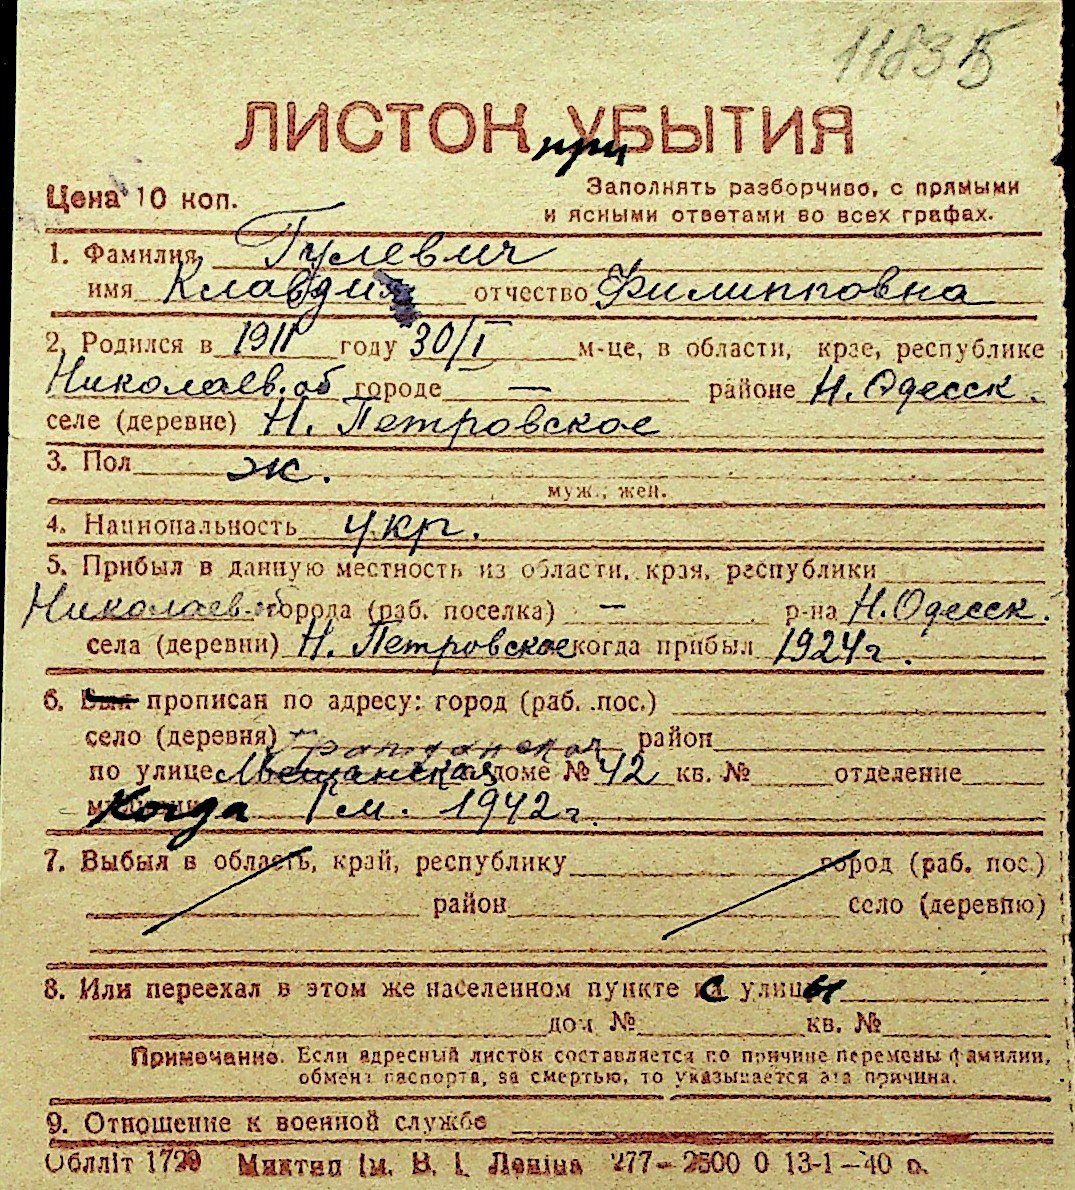 11835
ЛИСТОК при УБЫТИЯ
Цена 10 коп.
Заполнять разборчиво, с прямыми
и ясными ответами во всех графах.
1. Фамилия Гулевич
имя Клавдия отчество Филипповна
2. Родился в 1911 году 30/I м-це, в области, крае, республике
Николаев. об городе — районе Н. Одесск.
селе (деревне) Н. Петровское
3. Пол ж.
муж., жен.
4. Национальность укр.
5. Прибыл в данную местность из области, края, республики
Николаев. об города (раб. поселка) — р-на Н. Одесск.
села (деревни) Н. Петровское когда прибыл 1924 г.
6. Был прописан по адресу: город (раб. пос.)
село (деревня) Гражданская район
по улице Мещанская доме № 42 кв. № отделение
Когда 1 м. 1942 г.
7. Выбыл в область, край, республику город (раб. пос.)
район село (деревню)
8. Или переехал в этом же населенном пункте с улицы
дом № кв. №
Примечание. Если адресный листок составляется по причине перемены фамилии,
обмена паспорта, за смертью, то указывается эта причина.
9. Отношение к военной службе
Обллiт 1729 Миктип iм. В. I. Ленiна 277—2500 0 13-1—40 р.